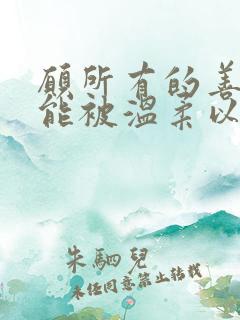 愿所有的善
能被温柔以
朱駟兒
未经同意禁止转载